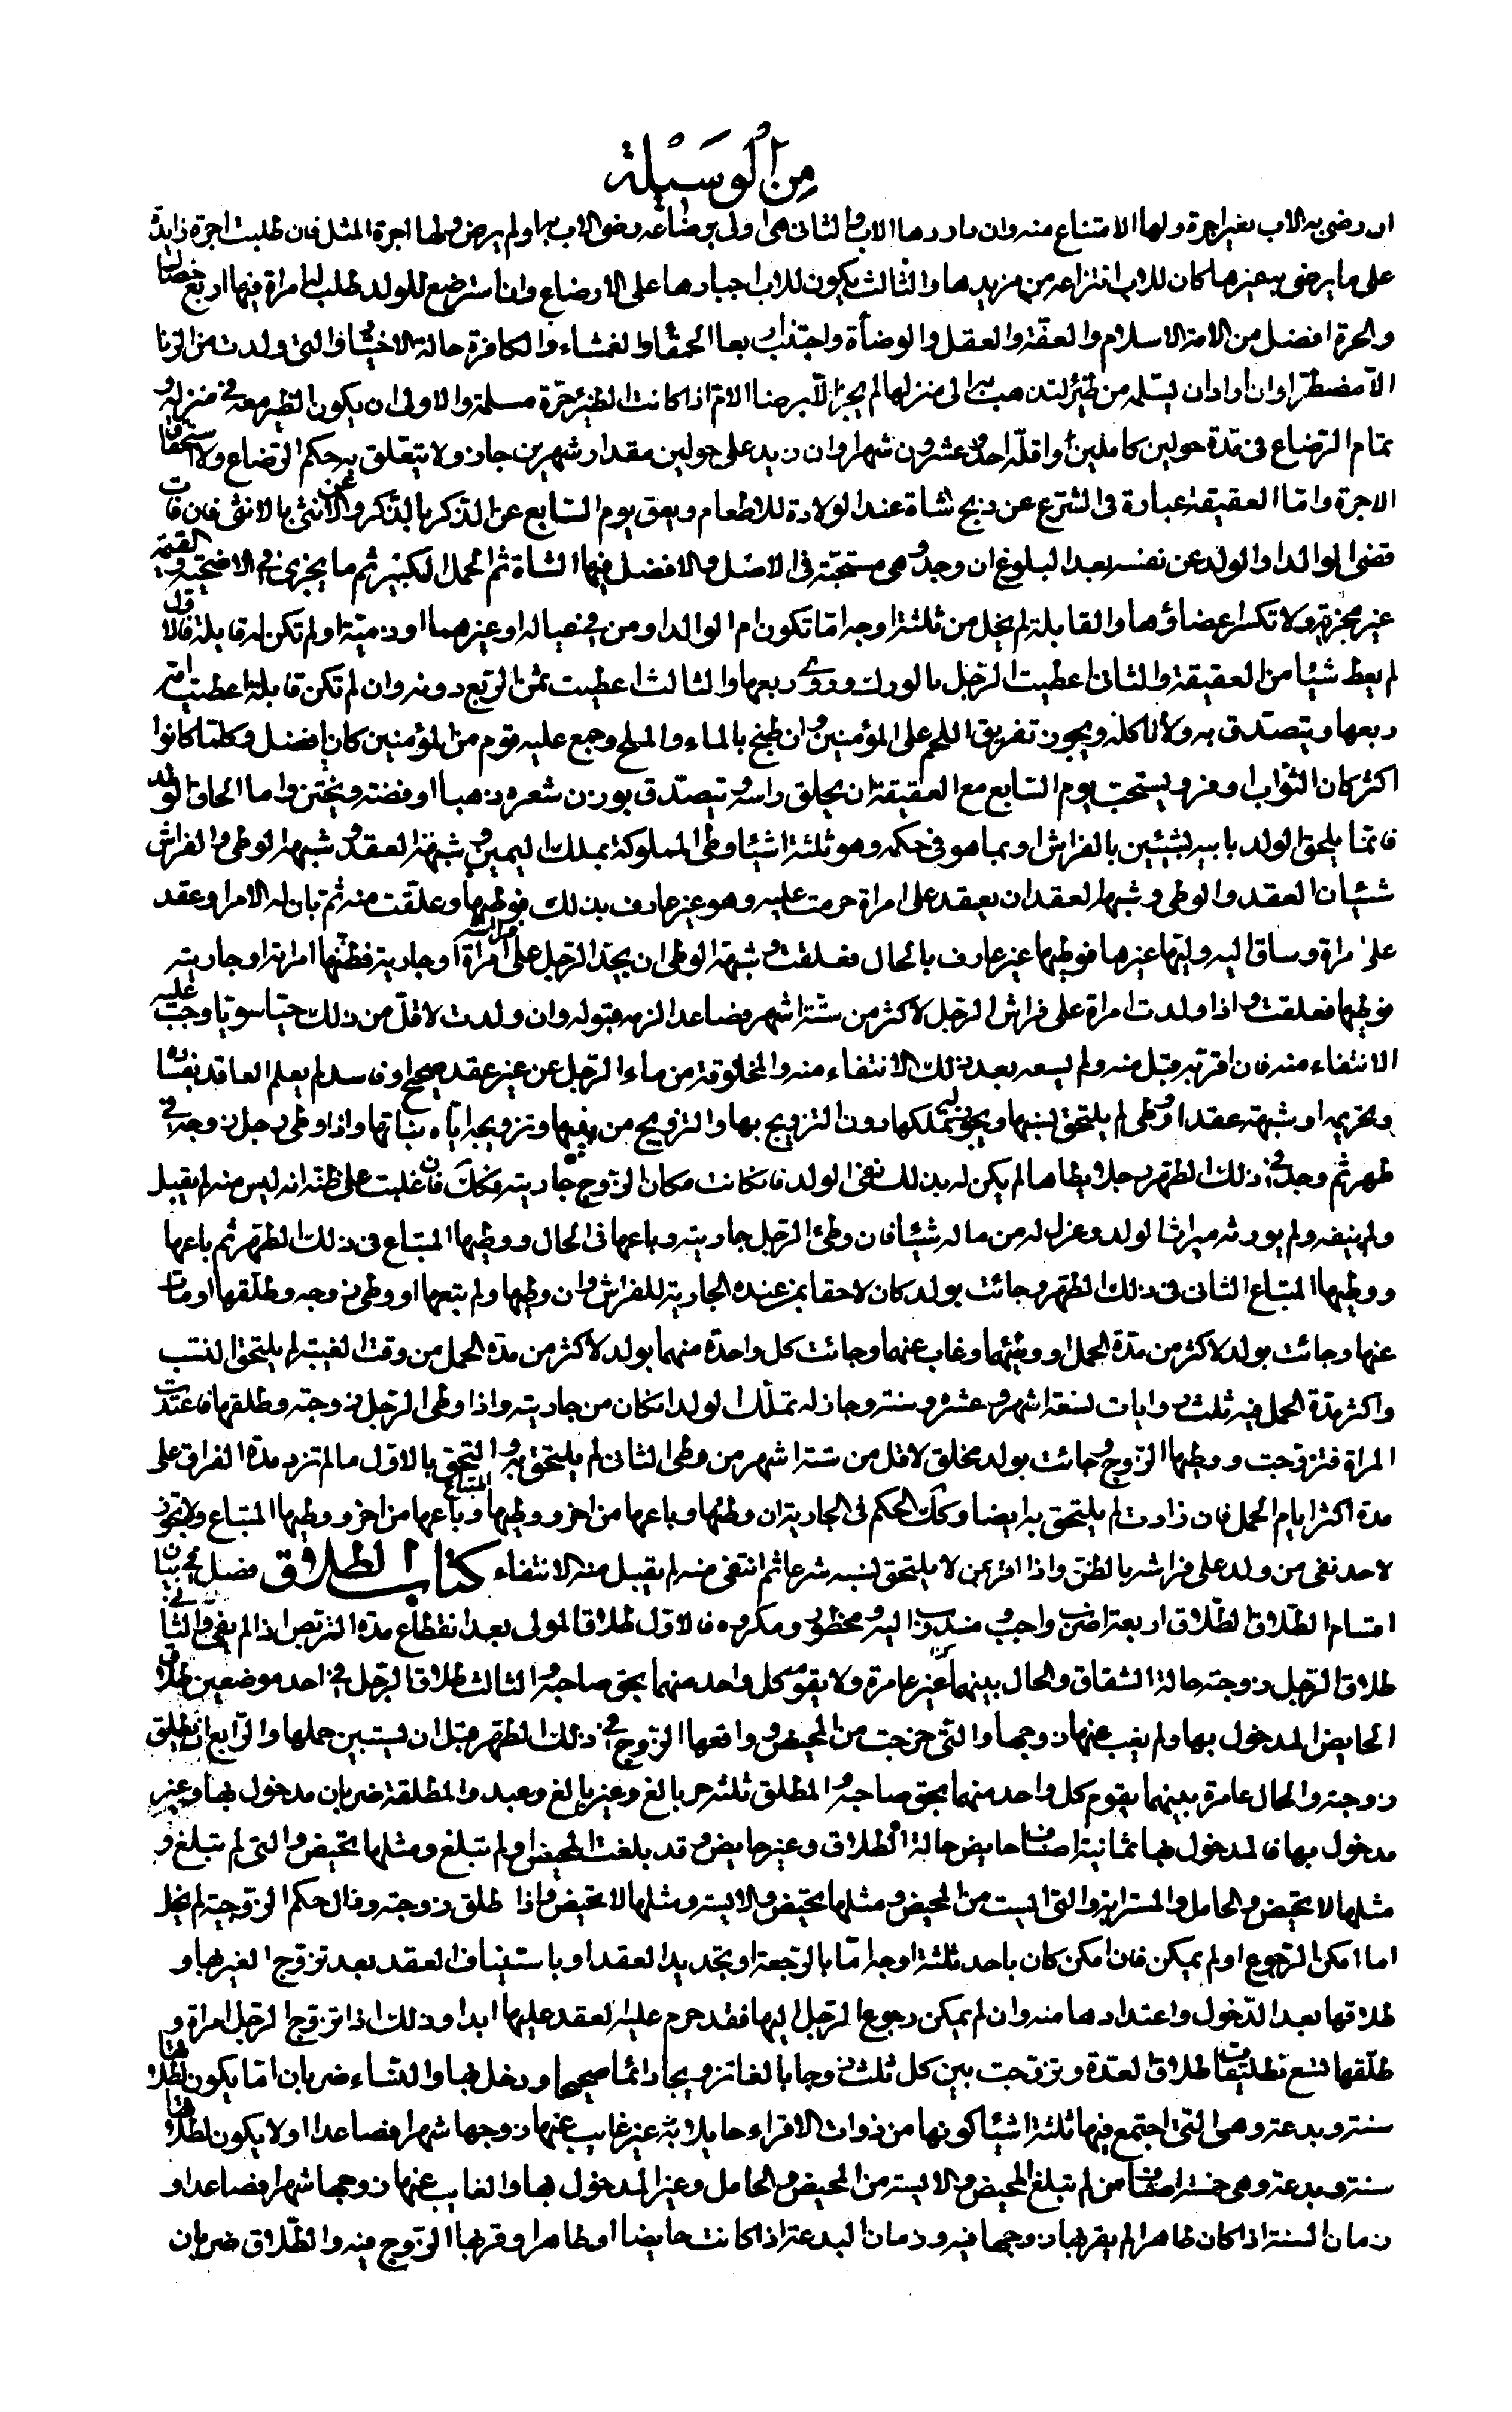 من الوسيلة
ان رضى به الاب بغير اجرة ولها الامتناع منه وان رادها الاب والثانى هى اولى برضاعه رضى الاب بها ولم يرض ولها اجرة المثل فان طلبت اجرة زايدة
على ما يرضى به غيرها كان للاب انتزاعه من يدها والثالث يكون للاب اجبارها على الارضاع وان استرضع للولد طلب له امراة فيها اربع خصال
والحرة افضل من الامة الاسلام والعفّة والعقل والوضأة واجتنب اربعا الحمقاء والغمشاء والكافرة حالة الاختيار والتى ولدت من الزنا
الّا مضطرا وان اراد ان يسلمه من ظئر لتذهب به الى منزلها لم يجز الّا برضا الام اذا كانت الظئر حرّة مسلمة والاولى ان يكون الظئر معه فى منزله و
تمام الرّضاع فى مدّة حولين كاملين واقلّه احد وعشرون شهرا وان زيد على حولين مقدار شهرين جاز ولا يتعلق به حكم الرّضاع ولا استحقاق
الاجرة وامّا العقيقة عبارة فى الشرع عن ذبح شاة عند الولادة للاطعام ويعق يوم السّابع عن الذّكر بالذّكر وعن الانثى بالانثى فان فات
قضى الوالد او الولد عن نفسه بعد البلوغ ان وجد وهى مستحبّة فى الاصل والافضل فيها الشاة ثم الحمل الكبير ثم ما يجزى فى الاضحية والقيمة
غير مجزية ولا تكسر اعضاؤها والقابلة لم يخل من ثلثة اوجه امّا تكون ام الوالد او من فى عياله او غيرهما او ذميّة او لم تكن له قابلة فالاول
لم يعط شيئا من العقيقة والثانى اعطيت الرّجل بالورك وروى ربعها والثالث اعطيت ثمن الربع دونه وان لم تكن قابلة اعطيت امه
ربعها ويتصدّق به ولا تاكله ويجوز تفريق اللحم على المؤمنين وان طبخ بالماء والملح وجمع عليه قوم من المؤمنين كان افضل وكلّما كانوا
اكثر كان الثّواب اوفر ويستحب يوم السّابع مع العقيقة ان يحلق راسه ويتصدّق بوزن شعره ذهبا او فضة ويختن واما الحاق الولد
فانما يلحق الولد بابيه بشيئين بالفراش او بما هو فى حكمه وهو ثلثة اشياء وطى المملوكة بملك اليمين وشبهة العقد وشبهة الوطى والفراش
شيئان العقد والوطى وشبهة العقد ان يعقد على امراة حرمت عليه وهو غير عارف بذلك فوطيها وعلقت منه ثم بان له الامر او عقد
على امراة وساق اليه وليّها غيرها فوطيها غير عارف بالحال فعلقت وشبهة الوطى ان يجد الرّجل على فراشه امراة او جارية فظنّها امراته او جاريته
فوطيها فعلقت واذا ولدت امراة على فراش الرّجل لاكثر من ستّة اشهر فصاعدا لزمه قبوله وان ولدت لاقلّ من ذلك حيّا سويّا وجب عليه
الانتفاء منه فان اقرّ به قبل منه ولم يسعه بعد ذلك الانتفاء منه والمخلوقة من ماء الرّجل عن غير عقد صحيح او فاسد لم يعلم العاقد بفساده
وتحريمه او شبهة عقد او وطى لم يلتحق نسبها ويجوز له تملكها دون التزويج بها والتزويج من بنيها وتزويجه اياه بناتها واذا وطى رجل زوجه فى
طهر ثم وجد فى ذلك الطهر رجلا يطاها لم يكن له بذلك نفى الولد فان كانت مكان الزوج جاريته فكك فان غلبت على ظنّه انه ليس منه لم يقبل
ولم ينفه ولم يورثه ميراث الولد وعزل له من ماله شيئا فان وطئ الرّجل جاريته وباعها فى الحال ووطيها المبتاع فى ذلك الطّهر ثم باعها
ووطيها المبتاع الثانى فى ذلك الطّهر وجائت بولد كان لاحقا بمن عنده الجارية للفراش وان وطيها ولم يبعها او وطى زوجه وطلّقها او مات
عنها وجائت بولد لاكثر من مدّة الحمل او وطئهما وغاب عنهما وجائت كل واحدة منهما بولد لاكثر من مدّة الحمل من وقت الغيبة لم يلتحق النسب
واكثر مدّة الحمل فيه ثلث روايات تسعة اشهر وعشرة وسنة وجاز له تملّك الولد ان كان من جاريته واذا وطى الرّجل زوجته وطلقها فاعتدت
المراة فتزوّجت ووطيها الزّوج وجائت بولد مخلق لاقل من ستة اشهر من وطى الثانى لم يلتحق به والتحق بالاوّل ما لم تزد مدّة الفراق على
مدة اكثر ايام الحمل فان زادت لم يلتحق به ايضا وكك الحكم فى الجارية ان وطئها وباعها من اخر ووطيها المبتاع وباعها من اخر ووطيها المبتاع ولا يجوز
لاحد نفى من ولد على فراشه بالظن واذا اقر بمن لا يلتحق نسبه شرعا ثم انتفى منه لم يقبل منه الانتفاء كتاب الطلاق فصل فى بيان
اقسام الطّلاق الطّلاق اربعة اضرب واجب ومندوب اليه ومحظور ومكروه فالاوّل طلاق المولى بعد انقطاع مدّة التربص اذا لم يفئ والثانى
طلاق الرّجل زوجته حالة الشقاق والحال بينهما غير عامرة ولا يقوم كل واحد منهما بحق صاحبه والثالث طلاق الرّجل فى احد موضعين طلاق
الحايض المدخول بها ولم يغب عنها زوجها والتى خرجت من المحيض وواقعها الزّوج فى ذلك الطّهر قبل ان يستبين حملها والرّابع ان يطلق
زوجته والحال عامرة بينهما يقوم كل واحد منهما بحق صاحبه والمطلق ثلثة حر بالغ وغير بالغ وعبد والمطلقة ضربان مدخول بها وغير
مدخول بها فالمدخول بها ثمانية اصناف حايض حالة الطّلاق وغير حايض وقد بلغت المحيض ولم تبلغ ومثلها تحيض والتى لم تبلغ و
مثلها لا تحيض والحامل والمسترابة والتى ايست من المحيض ومثلها تحيض والايسة ومثلها لا تحيض واذا طلق زوجته وزال حكم الزّوجية لم يخل
اما امكن الرّجوع او لم يمكن فان امكن كان باحد ثلثة اوجه امّا بالرّجعة او تجديد العقد او باستيناف العقد بعد تزوّج الغير بها و
طلاقها بعد الدّخول واعتدادها منه وان لم يمكن رجوع الرّجل اليها فقد حرم عليه العقد عليها ابدا وذلك اذا تزوّج الرّجل امراة و
طلّقها تسع تطليقات طلاق العدّة وتزوّجت بين كل ثلث زوجا بالغا تزويجا دائما صحيحا ودخل بها والنساء ضربان امّا يكون لطلاقها
سنة وبدعة وهى التى اجتمع فيها ثلثة اشياء كونها من ذوات الاقراء حايلا به غير غايب عنها زوجها شهرا فصاعدا او لا يكون لطلاقها
سنة وبدعة وهى خمسة اصناف من لم تبلغ المحيض والايسة من المحيض والحامل وغير المدخول بها والغايب عنها زوجها شهرا فصاعدا و
زمان السنة اذا كان طاهرا لم يقربها زوجها فيه وزمان البدعة اذا كانت حايضا او طاهرا وقربها الزّوج فيه والطّلاق ضربان